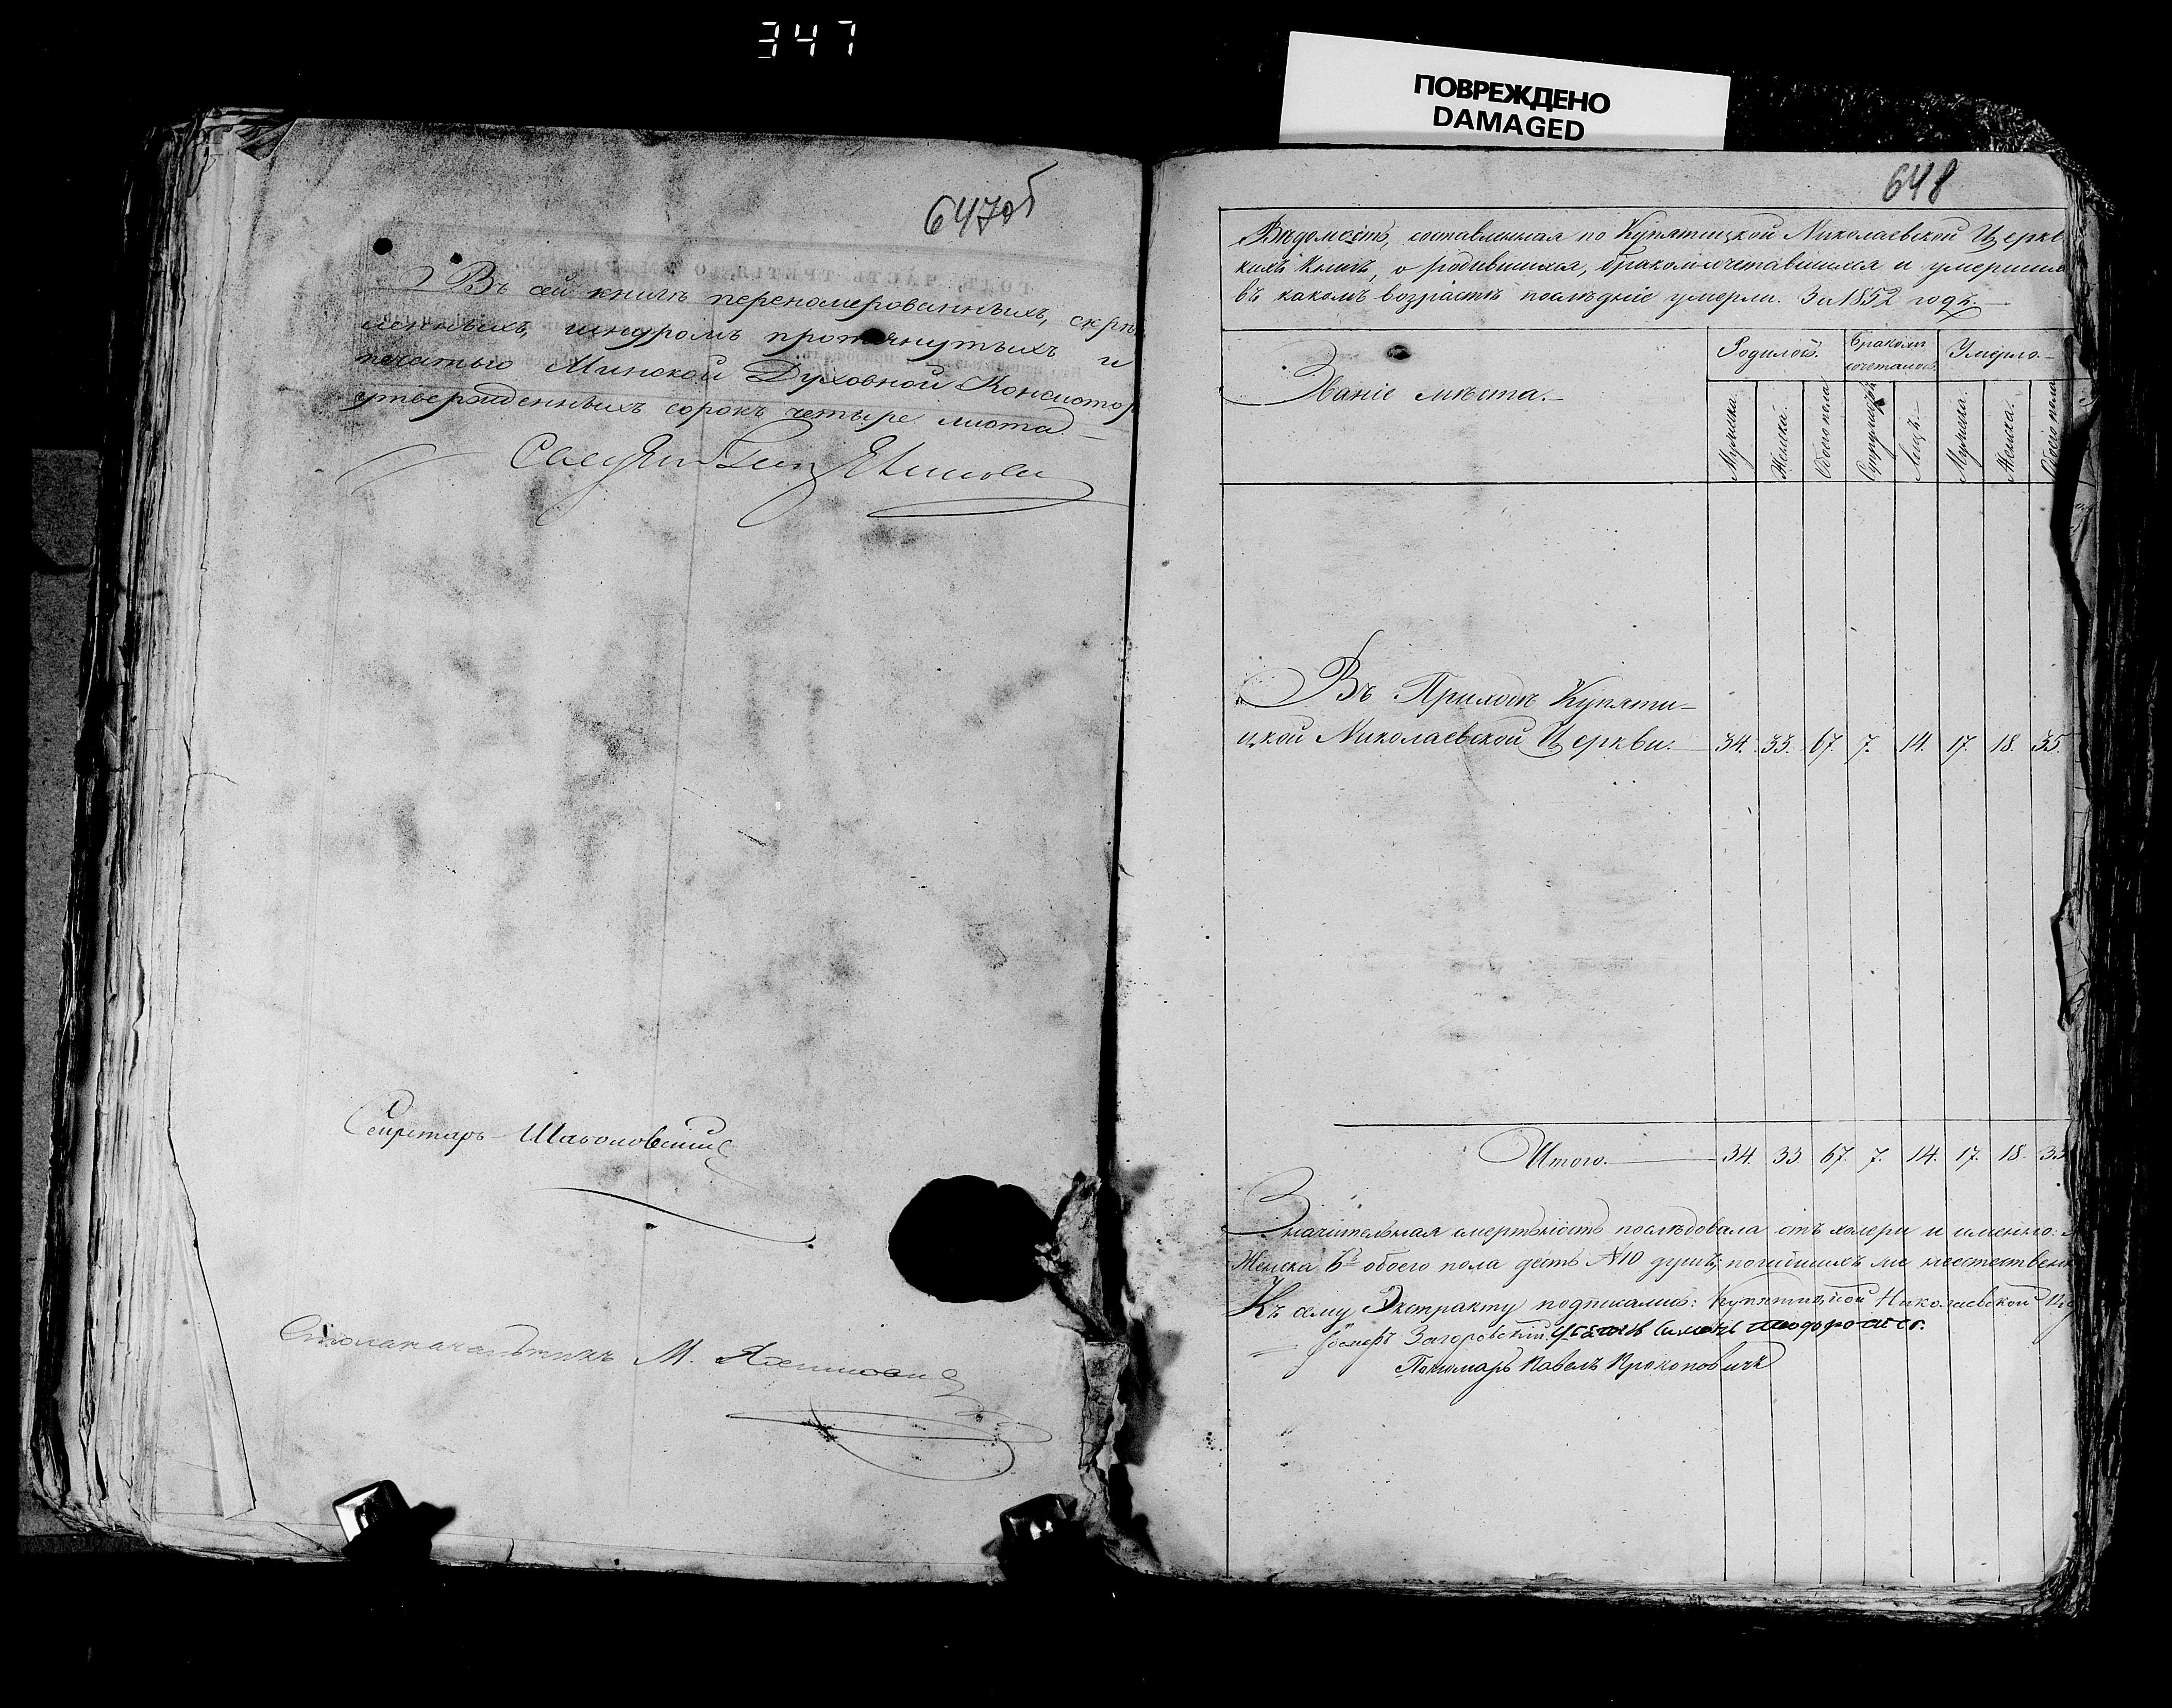 347
ПОВРЕЖДЕНО
DAMAGED
647об
Въ сей книгѣ переномерованныхъ, скрѣ
пленныхъ, шнуромъ протянутыхъ и
печатью Минской Духовной Консистор
утвержденныхъ сорокъ четыре листа.
Секретарь
Столоначальникъ М.
648
Вѣдомость, составленная по Купятицкой Николаевской Церкв
кихъ Книгъ, о родившихся, бракомъ сочетавшихся и умерших
въ какомъ возрастѣ послѣдніе умерли. За 1852 годъ.
Званіе мѣста.
Родилось.
Бракомъ сочеталось.
Умерло.
Мужеска.
Женска.
Обоего пола
Супружествъ
Лицъ.
Мужеска.
Женска.
Обоего пола
Въ Приходѣ Купяти-
цкой Николаевской Церкви. 34. 33. 67. 7. 14. 17. 18. 35
Итого. 34. 33 67. 7. 14. 17. 18. 35
Значительная смертность послѣдовала отъ холеры и именно:
Женска 6 обоего пола десть №10 душъ; погибшихъ
Къ сему Экстракту подписались: Купятицкой Николаевской
Іосифъ Загоровскій.
Пономарь Павелъ Прокоповичъ